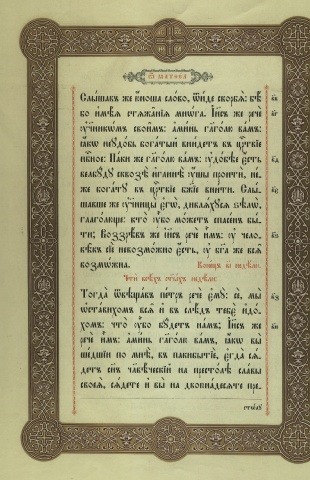 Ѿ МАТѲЕА
Слы́шавъ же ю҆́ноша сло́во, ѿи́де скорбѧ̀: бѣ́
бо и҆мѣ́ѧ стѧжа̑нїѧ мнѡ́га. І҆и҃съ же речѐ
ᲂу҆ч҃нкѡ́мъ свои̑мъ: а҆ми́нь гл҃ю ва́мъ,
ꙗ҆́кѡ неꙋдо́бь бога́тый вни́детъ въ црⷭ҇твїе
нбⷭ҇ное: Па́ки же гл҃ю ва́мъ: ᲂу҆до́бѣе є҆́сть
велбꙋ́дꙋ сквозѣ̀ и҆глинѣ̑ ᲂу҆́шы проитѝ, не́-
же бога́тꙋ въ црⷭ҇твїе бж҃їе вни́ти. Слы́-
шавше же ᲂу҆ченицы̀ є҆гѡ̀, дивлѧ́хꙋсѧ ѕѣлѡ̀,
глаго́люще: кто̀ ᲂу҆̀бо мо́жетъ спасе́нъ бы́-
ти; Воззрѣ́въ же і҆и҃съ речѐ и҆̀мъ: ᲂу҆ чело-
вѣ̑къ сїѐ невозмо́жно є҆́сть, ᲂу҆ бг҃а же всѧ̑
возмѡ́жна. Коне́цъ в҃і недѣ́ли.
Чтⷭ҇и всѣ́хъ ст҃ы́хъ недѣ́ли:
Тогда̀ ѿвѣща́въ пе́тръ речѐ є҆мꙋ̀: сѐ, мы̀
ѡ҆ста́вихомъ всѧ̑ и҆ в̾ слѣ́дъ тебѐ и҆до́-
хомъ: что̀ ᲂу҆̀бо бꙋ́детъ на́мъ; І҆и҃съ же
речѐ и҆̀мъ: а҆ми́нь гл҃ю ва́мъ, ꙗ҆́кѡ вы̀
ше́дшїи по мнѣ̀, въ пакибытїѐ, є҆гда̀ сѧ́-
детъ сн҃ъ чл҃вѣ́ческїй на прⷭ҇то́лѣ сла́вы
своеѧ̀, сѧ́дете и҆ вы̀ на двоюна́десѧте пре-
сто́лꙋ
к҃в
к҃г
к҃д
к҃є
к҃ѕ
к҃з
к҃и